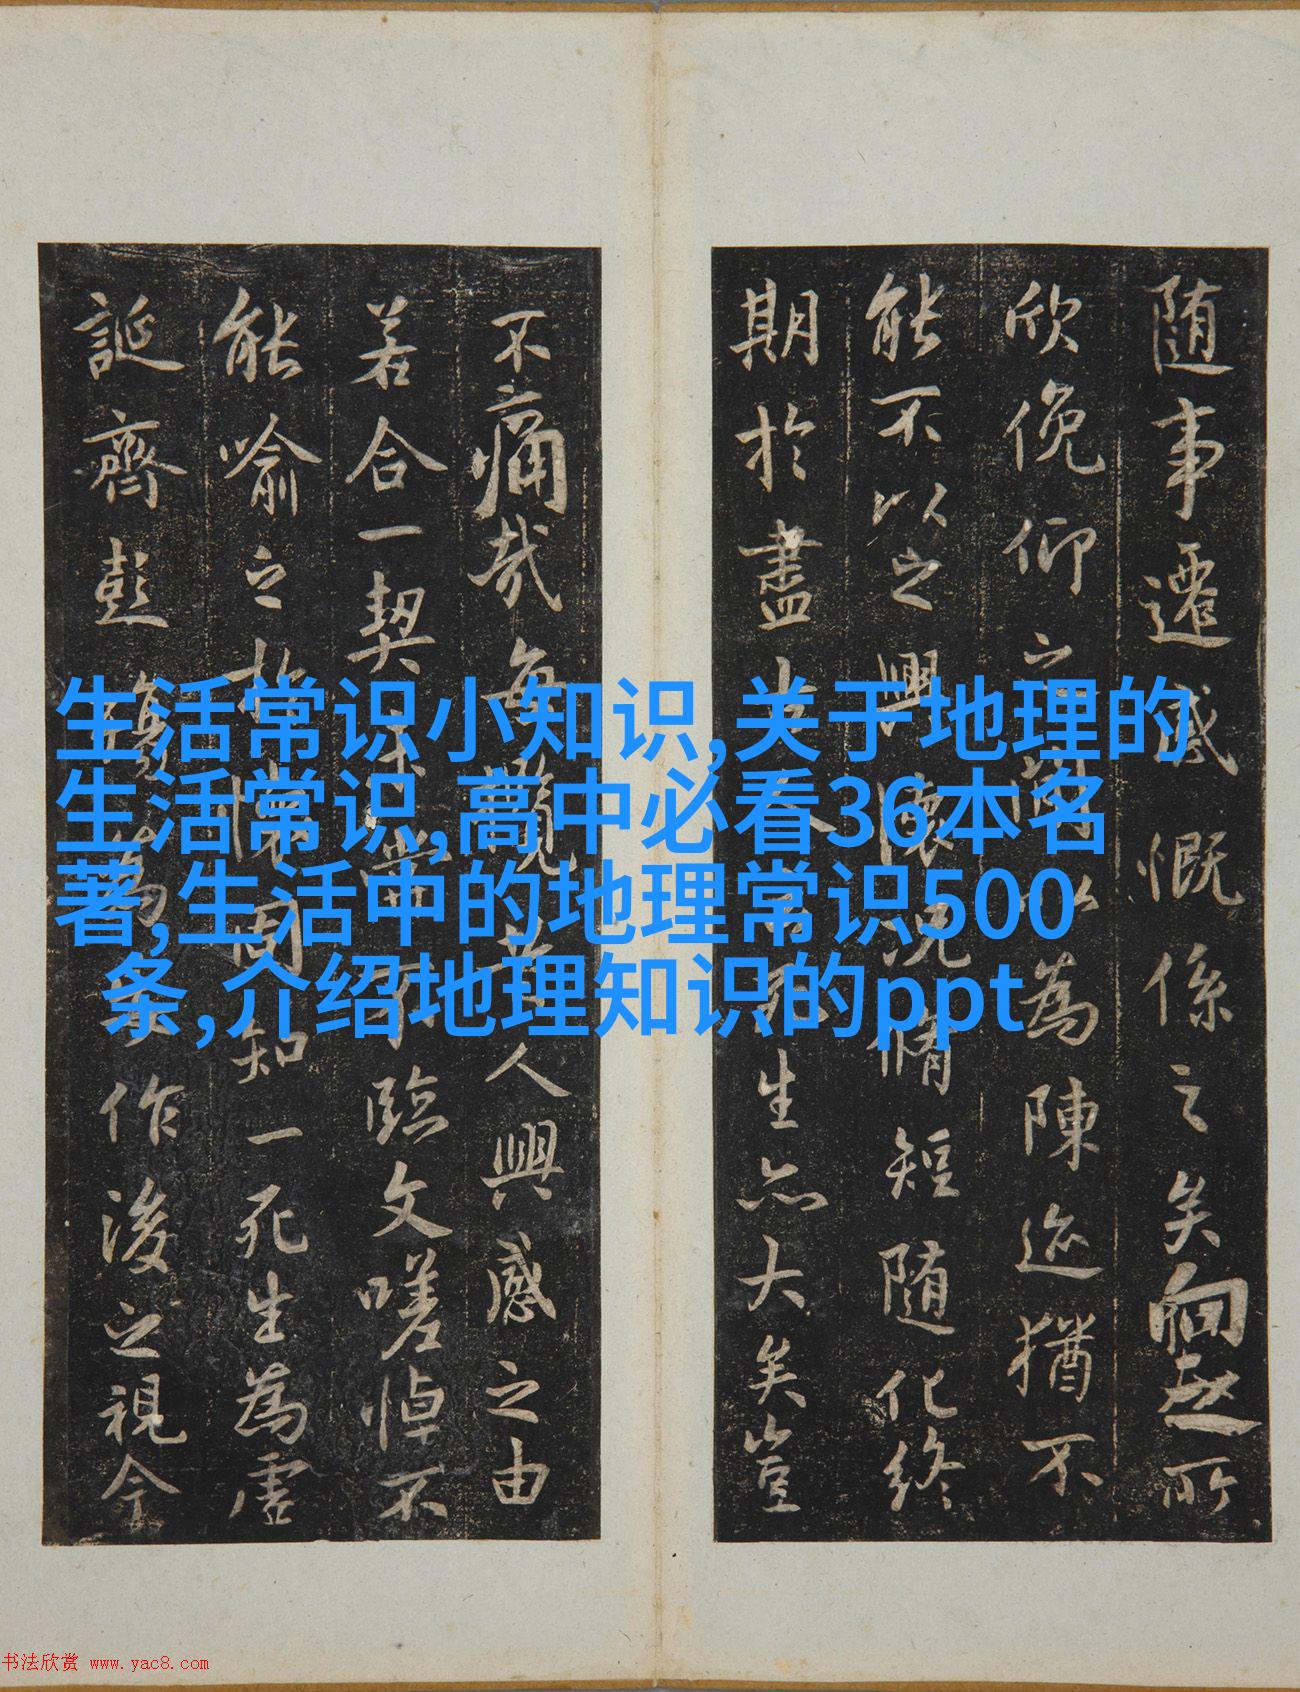 随事遷感慨係之矣向之所
欣俛仰之間以為陳迹猶不
能不以之興懷況脩短随化終
期於盡古人云死生亦大矣豈
不痛哉每攬昔人興感之由
若合一契未嘗不臨文嗟悼不
能喻之於懷固知一死生為虛
誕齊彭殤為妄作後之視今
生活常识小知识,关于地理的
生活常识,高中必看36本名
著,生活中的地理常识500
条,介绍地理知识的ppt
书法欣赏 www.yac8.com